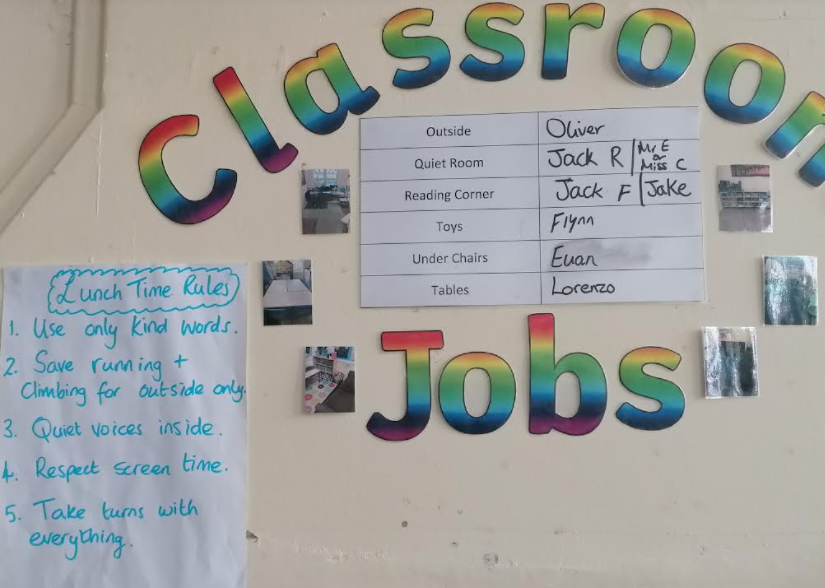 Classroom
Outside Oliver
Quiet Room Jack R | Mr E or Miss C
Reading Corner Jack F | Jake
Toys Flynn
Under Chairs Euan
Tables Lorenzo
Jobs
Lunch Time Rules
1. Use only kind words.
2. Save running +
Climbing for outside only.
3. Quiet voices inside.
4. Respect screen time.
5. Take turns with
everything.